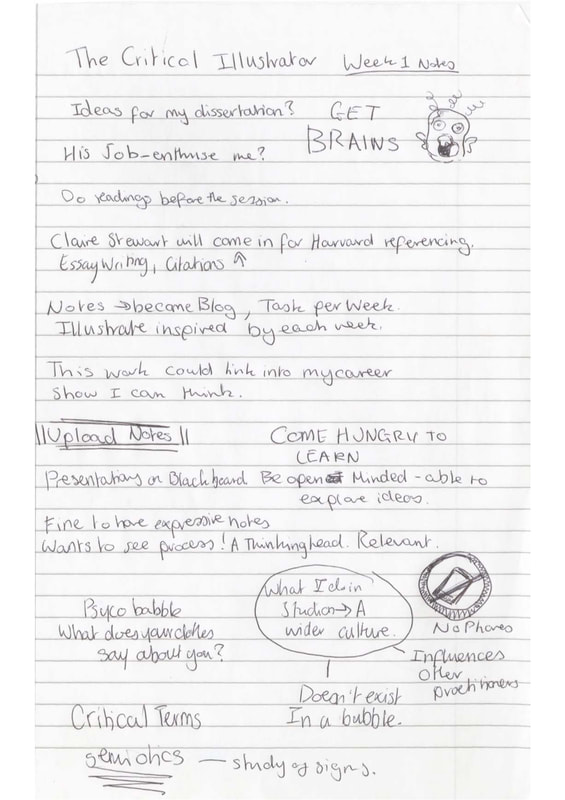 The Critical Illustrator Week 1 Notes
Ideas for my dissertation? GET
BRAINS
His Job-enthuse me?
Do readings before the session.
Claire Stewart will come in for Harvard referencing.
Essay Writing, Citations ↑
Notes → become Blog, Task per Week.
Illustrate inspired by each week.
This work could link into my career
show I can think.
||Upload Notes||
COME HUNGRY TO
LEARN
Presentations on Blackboard
Be open Minded - able to
explore ideas.
Fine to have expressive notes
Wants to see process! A Thinking head. Relevant.
What I do in
Studio → A
wider culture.
No Phones
Psyco babble
What does your clothes
say about you?
Influences
other
practitioners
Doesn't exist
In a bubble.
Critical Terms
semiotics — study of signs.